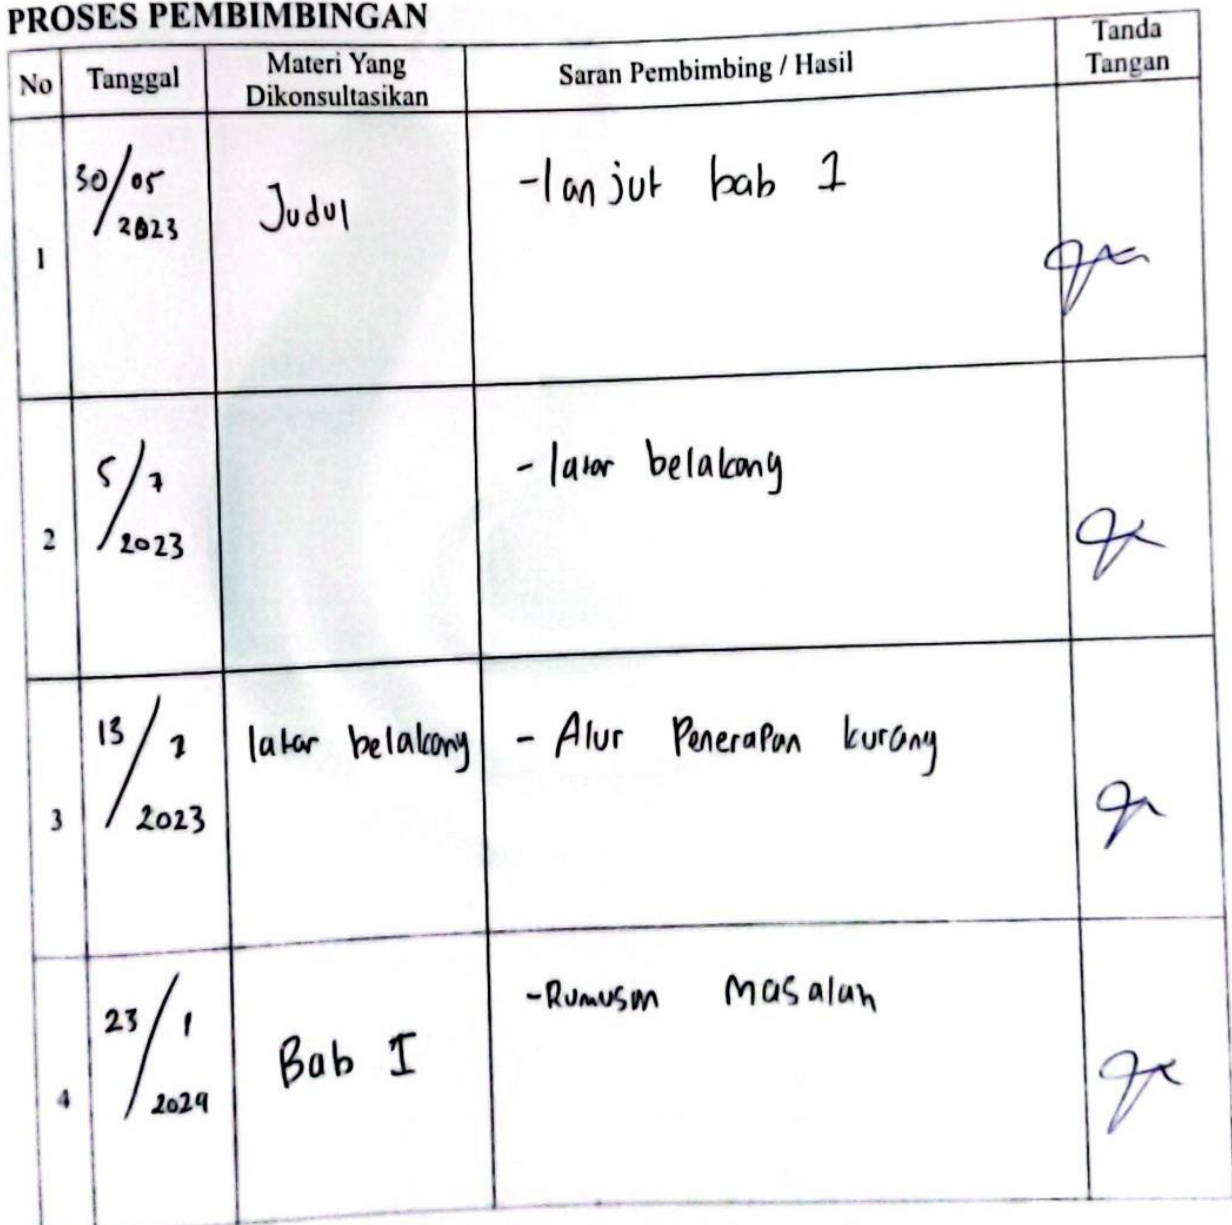 PROSES PEMBIMBINGAN
No Tanggal Materi Yang Dikonsultasikan Saran Pembimbing / Hasil Tanda Tangan
1 30/05/2023 Judul -lanjut bab 1
2 5/7/2023 - latar belakang
3 13/7/2023 latar belakang - Alur Penerapan kurang
4 23/1/2024 Bab I -Rumusan Masalah